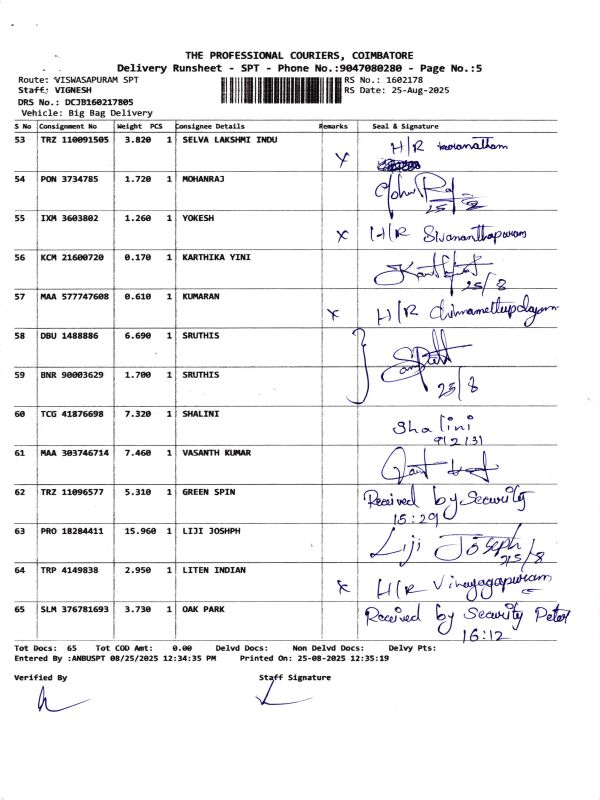 THE PROFESSIONAL COURIERS, COIMBATORE
Delivery Runsheet - SPT - Phone No.:9047080280 - Page No.:5
Route: VISWASAPURAM SPT RS No.: 1602178
Staff: VIGNESH RS Date: 25-Aug-2025
DRS No.: DCJB160217805
Vehicle: Big Bag Delivery
S No Consignment No Weight PCS Consignee Details Remarks Seal & Signature
53 TRZ 110091505 3.820 1 SELVA LAKSHMI INDU x H/R
54 PON 3734785 1.720 1 MOHANRAJ
25/8
55 IXM 3603802 1.260 1 YOKESH x H/R Sivananthapuram
56 KCM 21600720 0.170 1 KARTHIKA YINI
25/8
57 MAA 577747608 0.610 1 KUMARAN x H/R Chinnamettupalayam
58 DBU 1488886 6.690 1 SRUTHIS
59 BNR 90003629 1.700 1 SRUTHIS
25/8
60 TCG 41876698 7.320 1 SHALINI Shalini
61 MAA 303746714 7.460 1 VASANTH KUMAR
62 TRZ 11096577 5.310 1 GREEN SPIN Received by Security
15:29
63 PRO 18284411 15.960 1 LIJI JOSHPH Liji Joseph
25/8
64 TRP 4149838 2.950 1 LITEN INDIAN x H/R Vinayagapuram
65 SLM 376781693 3.730 1 OAK PARK Received by Security Peter
16:12
Tot Docs: 65 Tot COD Amt: 0.00 Delvd Docs: Non Delvd Docs: Delvy Pts:
Entered By :ANBUSPT 08/25/2025 12:34:35 PM Printed On: 25-08-2025 12:35:19
Verified By Staff Signature